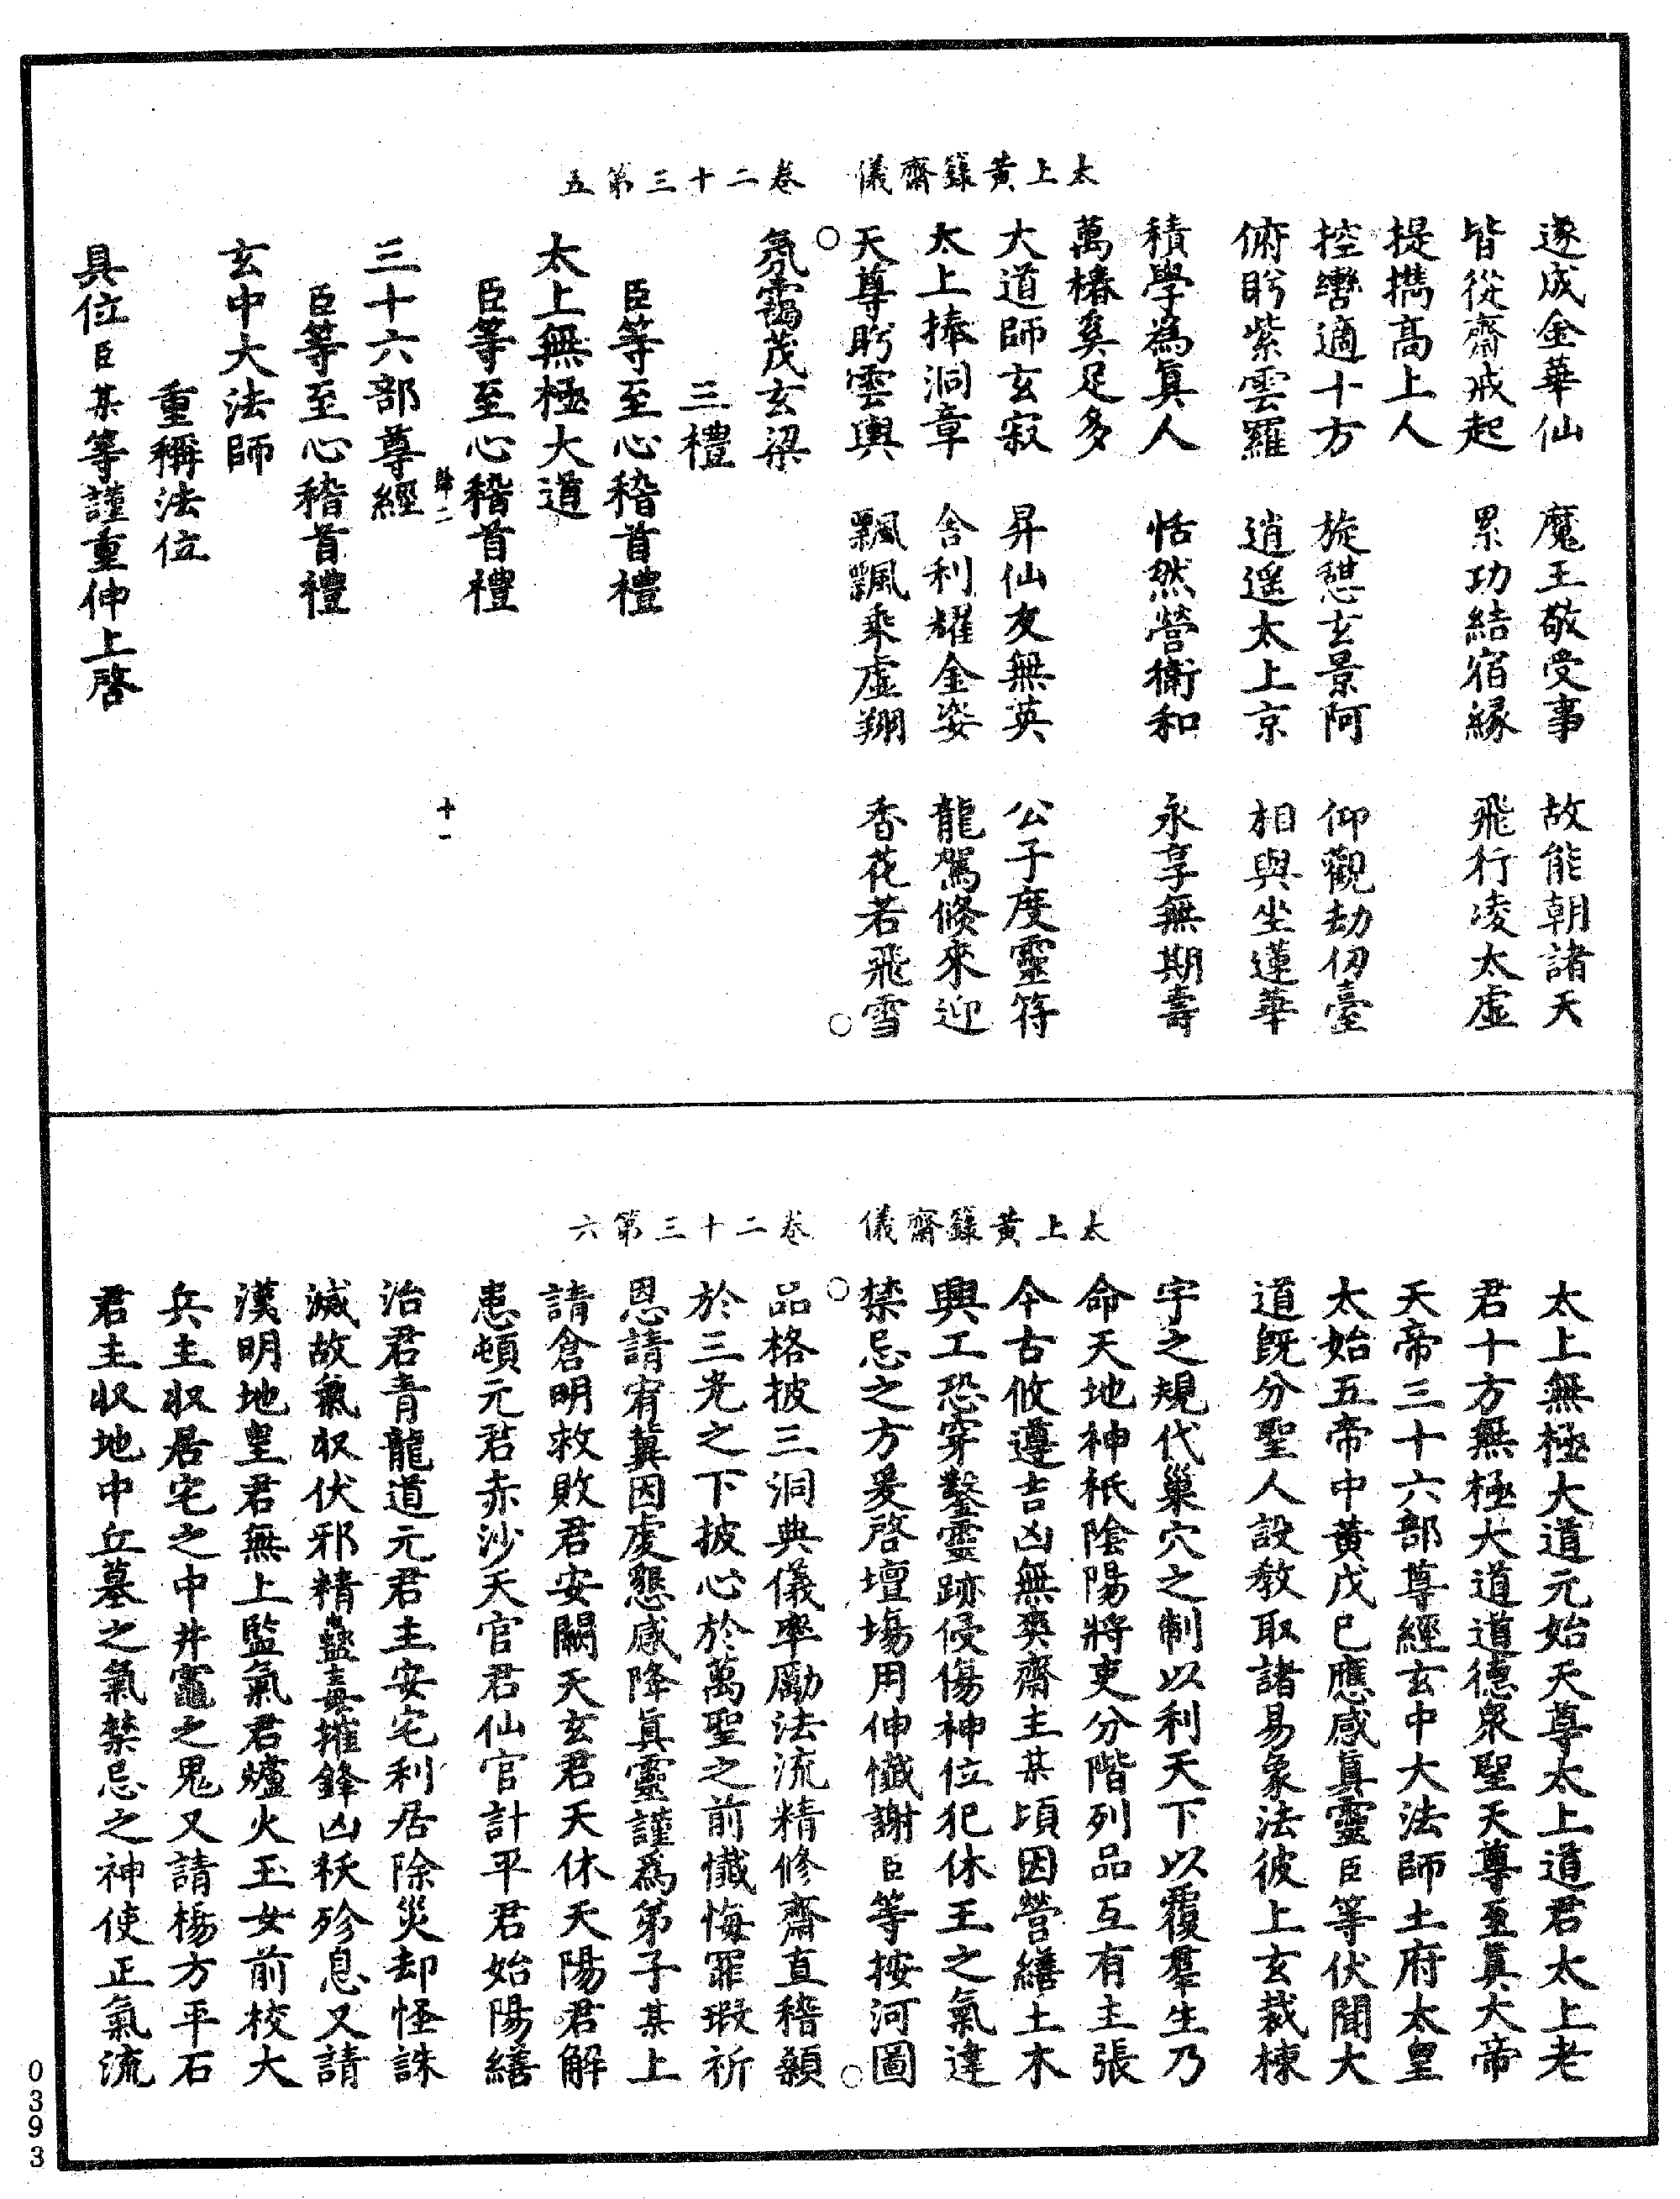 太上黃籙齋儀　卷二十三第五
遂成金華仙　魔王敬受事　故能朝諸天
皆從齋戒起　累功結宿緣　飛行凌太虛
提攜高上人
控轡適十方　旋憩玄景阿　仰觀劫仞臺
俯眄紫雲羅　逍遙太上京　相與坐蓮華
積學為真人　恬然營衛和　永享無期壽
萬椿奚足多
大道師玄寂　昇仙友無英　公子度靈符
太上捧洞章　舍利耀金姿　龍駕倏來迎
天尊眄雲輿　飄飄乘虛翔　香花若飛雪
氛靄茂玄梁
三禮
臣等至心稽首禮
太上無極大道
臣等至心稽首禮
歸二　十一
三十六部尊經
臣等至心稽首禮
玄中大法師
重稱法位
具位臣某等謹重伸上啓
太上黃籙齋儀　卷二十三第六
太上無極大道元始天尊太上道君太上老
君十方無極大道道德眾聖天尊至真大帝
天帝三十六部尊經玄中大法師土府太皇
太始五帝中黃戊巳應感真靈臣等伏聞大
道既分聖人設教取諸易象法彼上玄裁棟
宇之規代巢穴之制以利天下以覆羣生乃
命天地神祇陰陽將吏分階列品互有主張
今古攸遵吉凶無爽齋主某頃因營繕土木
興工恐穿鑿靈跡侵傷神位犯休王之氣違
禁忌之方爰啓壇場用伸懺謝臣等按河圖
品格披三洞典儀率勵法流精修齋直稽顙
於三光之下披心於萬聖之前懺悔罪瑕祈
恩請宥冀因虔懇感降真靈謹為弟子某上
請倉明救敗君安闕天玄君天休天陽君解
患頓元君赤沙天官君仙官計平君始陽繕
治君青龍道元君主安宅利居除災却怪誅
滅故氣收伏邪精蠱毒摧鋒凶祅殄息又請
漢明地皇君無上監氣君爐火玉女前校大
兵主收居宅之中井竈之鬼又請楊方平石
君主收地中丘墓之氣禁忌之神使正氣流
0393